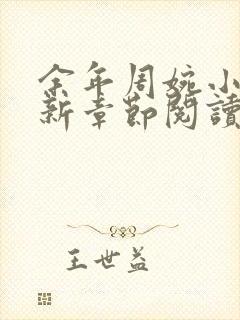 余年周婉小
新章節閱讀
王世益